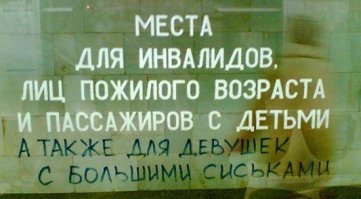 МЕСТА
ДЛЯ ИНВАЛИДОВ,
ЛИЦ ПОЖИЛОГО ВОЗРАСТА
И ПАССАЖИРОВ С ДЕТЬМИ
А ТАКЖЕ ДЛЯ ДЕВУШЕК
С БОЛЬШИМИ СИСЬКАМИ